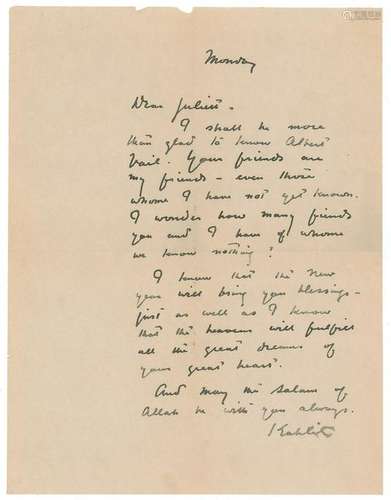 Monday
Dear Juliet -
I shall be more
than glad to know Albert
Vail. Your friends are
my friends - even those
whome I have not yet known.
I wonder how many friends
you and I have of whome
we know nothing?
I know that the New
year will bring you blessings -
just as well as I know
that the heavens will fulfill
all the great dreams of
your great heart.
And may the Salam of
Allah be with you always.
Kahlil